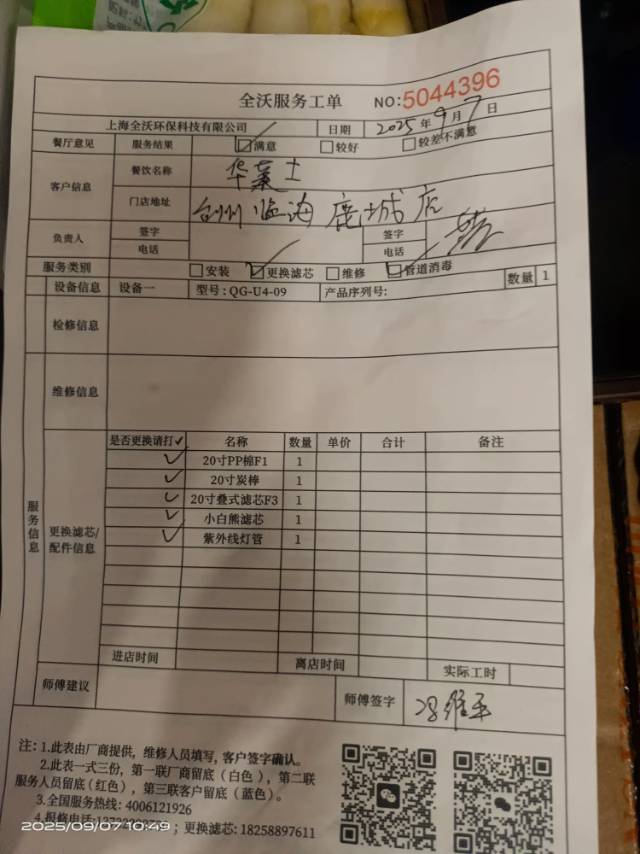 全沃服务工单 NO:5044396
上海全沃环保科技有限公司 日期 2025年9月7日
餐厅意见 服务结果 ☑满意 □较好 □较差不满意
客户信息 餐饮名称 华莱士
门店地址 台州临海鹿城店
负责人 签字 签字
电话 电话
服务类别 □安装 ☑更换滤芯 □维修 ☑管道消毒
设备信息 设备一 型号:QG-U4-09 产品序列号: 数量 1
检修信息
维修信息
服务信息
更换滤芯/配件信息
是否更换请打✓ 名称 数量 单价 合计 备注
✓ 20寸PP棉F1 1
✓ 20寸炭棒 1
✓ 20寸叠式滤芯F3 1
✓ 小白熊滤芯 1
✓ 紫外线灯管 1
进店时间 离店时间 实际工时
师傅建议 师傅签字 冯维平
注:1.此表由厂商提供,维修人员填写,客户签字确认。
2.此表一式三份,第一联厂商留底(白色),第二联
服务人员留底(红色),第三联客户留底(蓝色)。
3.全国服务热线:4006121926
4.报修电话: ;更换滤芯:18258897611
2025/09/07 10:49